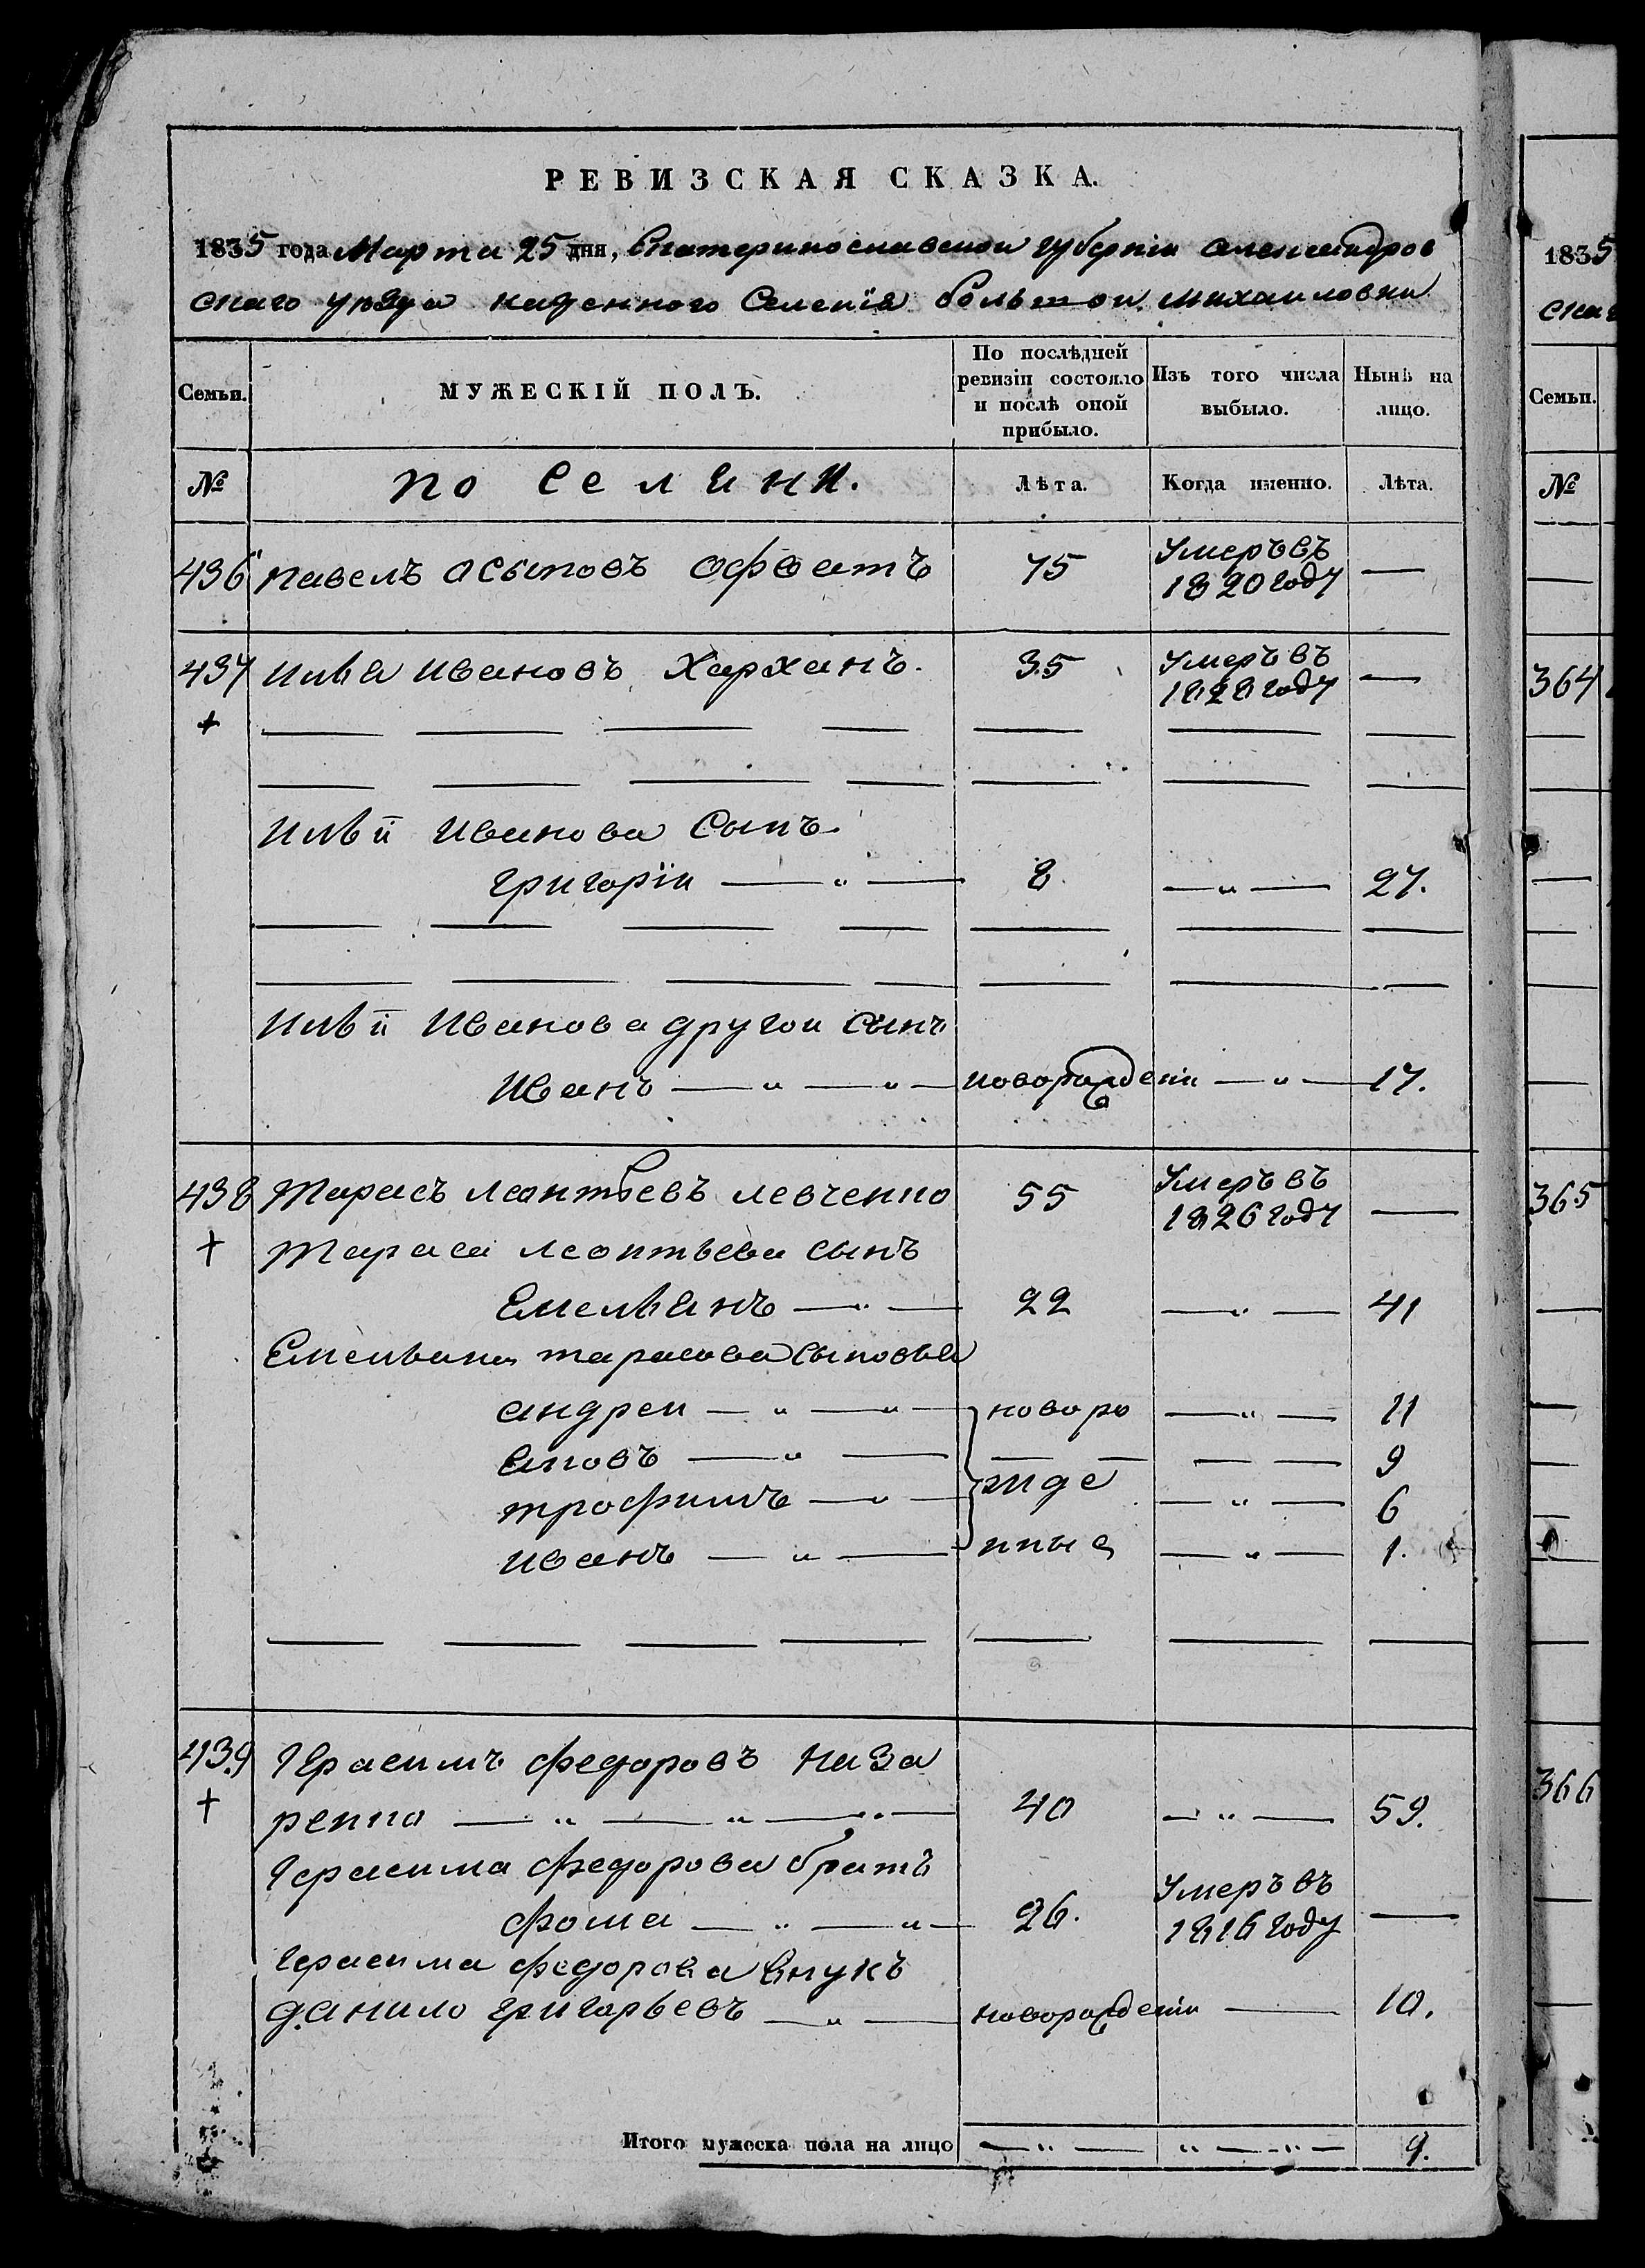 РЕВИЗСКАЯ СКАЗКА.
1835 года Марта 25 дня, Екатеринославской губерніи александров
скаго уѣзда казенного Селенія большои михаиловки
Семьи.
МУЖЕСКІЙ ПОЛЪ.
По послѣдней ревизіи состояло и послѣ оной прибыло.
Изъ того числа выбыло.
Нынѣ на лицо.
№
поселяни.
Лѣта.
Когда именно.
Лѣта.
436 павелъ Осыповъ Офватъ 75 Умеръ въ 1820 году —
437 Илья Ивановъ Харханъ. 35 Умеръ въ 1828 году —
+
Ильи Иванова Сынъ
григоріи — " — 8 — " — 27.
Ильи Иванова другои сынъ
Иванъ — " — " — новорожденіи — " — 17.
438 Тарасъ Леонтьевъ левченко 55 Умеръ въ 1826 году —
+ Тараса Леонтьева сынъ
Емельянъ — " — 22 — " — 41
Емельяна тарасова сыновья
андреи — " — " — новоро — " — 11
яковъ — " — — — — — 9
трофимъ — " — жде — " — 6
иванъ — " — нные — " — 1.
439 Герасимъ федоровъ наза
+ ренко — " — " — " — 40 — " — 59.
Герасима федорова братъ
фома — " — " — 26. Умеръ въ 1816 году —
Герасима федорова внукъ
данило григорьевъ — " — новорожденіи — 10.
Итого мужеска пола на лицо — " — " — " — 9.
1835
скаг
Семьи.
№
364
365
366